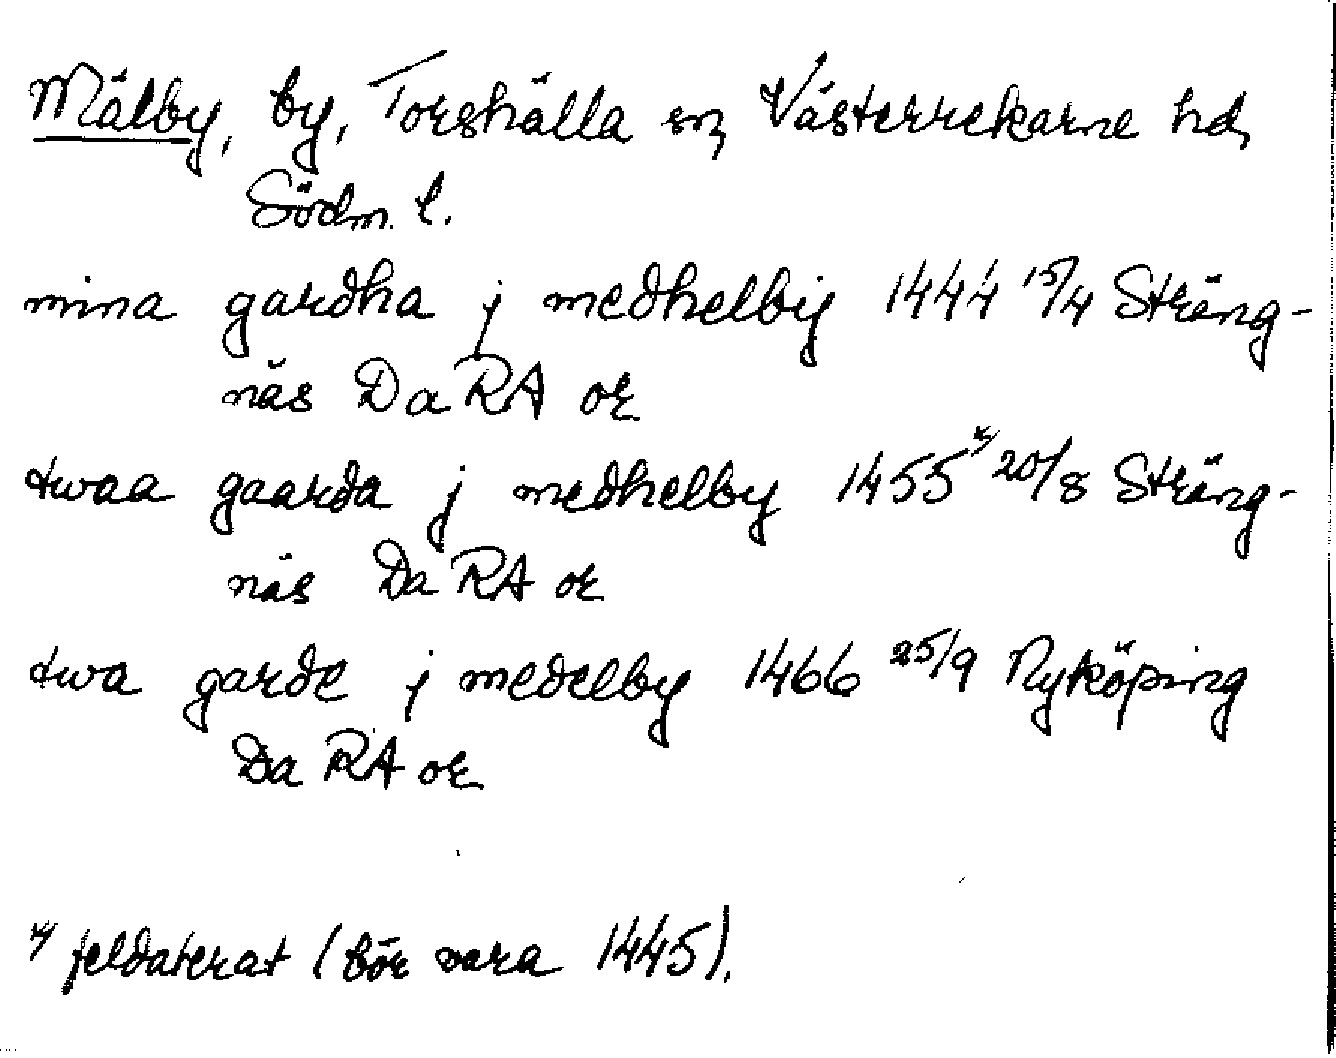 Mälby, by, Torshälla sn, Västerrekarne hd,
Södm. l.
mina gardha j medhelby 1444 15/4 Sträng-
näs Da RA or
twaa gaarda j medhelby 1455 x/ 20/8 Sträng-
näs Da RA or
twa garde j medelby 1466 25/9 Nyköping
Da RA or
x/ feldaterat (bör vara 1445).